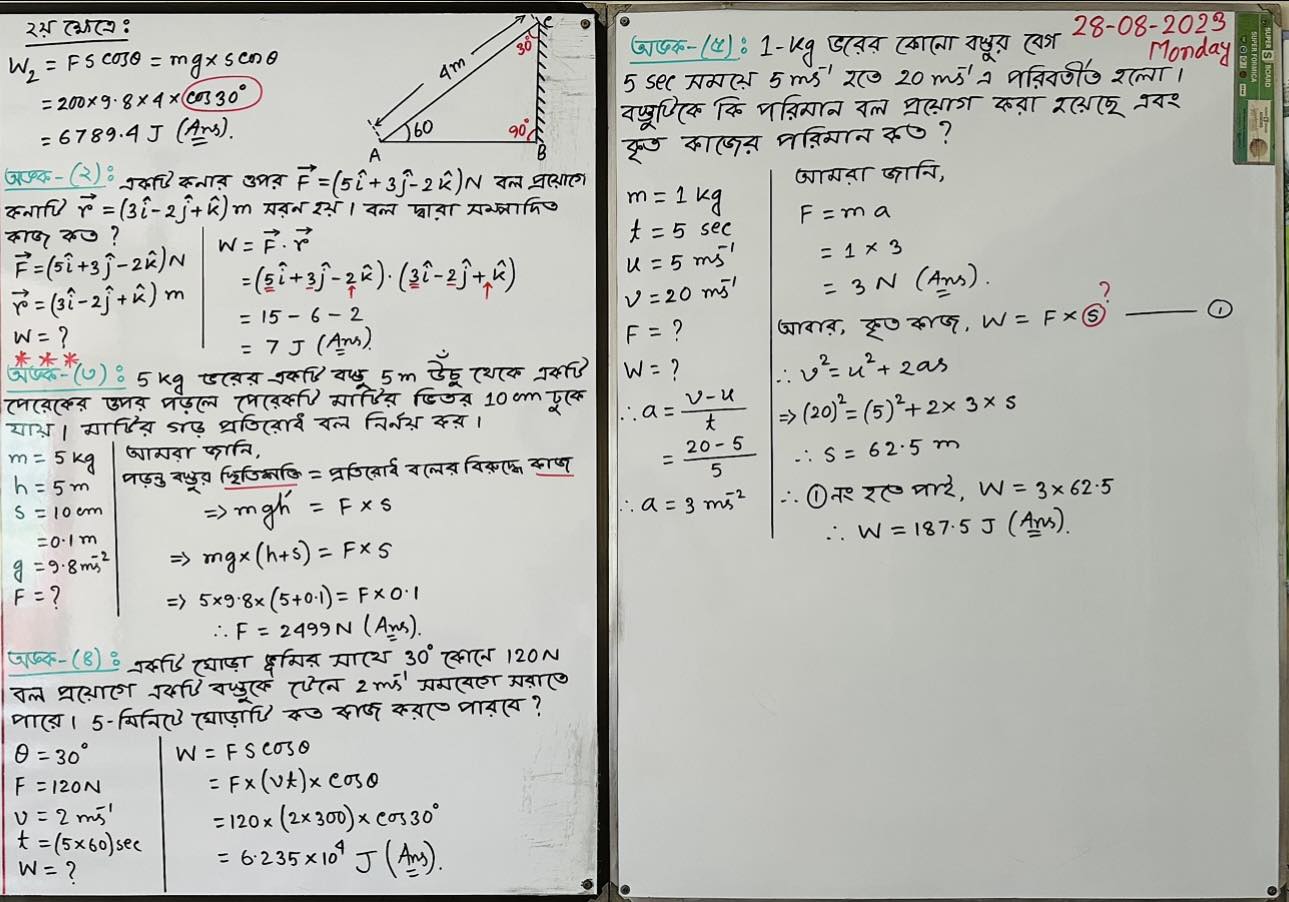 ২য় ক্ষেত্রে:
W₂ = F s cosθ = mg × s cosθ
= 200×9.8×4×cos30°
= 6789.4 J (Ans).
4m
C
30°
60
90°
A
B
অঙ্ক-(২): একটি কনার ওপর F⃗ = (5î+3ĵ-2k̂)N বল প্রয়োগে
কনাটি r⃗ = (3î-2ĵ+k̂) m সরন হয়। বল দ্বারা সম্পাদিত
কাজ কত?
F⃗ = (5î+3ĵ-2k̂)N
r⃗ = (3î-2ĵ+k̂) m
W = ?
W = F⃗ · r⃗
= (5î+3ĵ-2k̂)·(3î-2ĵ+k̂)
= 15 - 6 - 2
= 7 J (Ans).
***
অঙ্ক-(৩): 5 kg ভরের একটি বস্তু 5m উঁচু থেকে একটি
পেরেকের ওপর পড়লে পেরেকটি মাটির ভিতর 10 cm ঢুকে
যায়। মাটির গড় প্রতিরোধ বল নির্নয় কর।
m = 5 kg
h = 5 m
s = 10 cm
= 0.1 m
g = 9.8 ms⁻²
F = ?
আমরা জানি,
পড়ন্ত বস্তুর স্থিতিশক্তি = প্রতিরোধ বলের বিরুদ্ধে কাজ
⇒ mgh′ = F × s
⇒ mg×(h+s) = F× s
⇒ 5×9.8×(5+0.1) = F×0.1
∴ F = 2499 N (Ans).
অঙ্ক-(8): একটি ঘোড়া ভূমির সাথে 30° কোনে 120N
বল প্রয়োগে একটি বস্তুকে টেনে 2 ms⁻¹ সমবেগে সরাতে
পারে। 5-মিনিটে ঘোড়াটি কত কাজ করতে পারবে?
θ = 30°
F = 120N
v = 2 ms⁻¹
t = (5×60) sec
W = ?
W = F s cosθ
= F×(vt)×cosθ
= 120×(2×300)×cos30°
= 6.235×10⁴ J (Ans).
28-08-2023
Monday
অঙ্ক-(৫): 1-kg ভরের কোনো বস্তুর বেগ
5 sec সময়ে 5 ms⁻¹ হতে 20 ms⁻¹ এ পরিবর্তীত হলো।
বস্তুটিকে কি পরিমান বল প্রয়োগ করা হয়েছে এবং
কৃত কাজের পরিমান কত?
m = 1 kg
t = 5 sec
u = 5 ms⁻¹
v = 20 ms⁻¹
F = ?
W = ?
∴ a = (v-u)/t
= (20-5)/5
∴ a = 3 ms⁻²
আমরা জানি,
F = m a
= 1 × 3
= 3 N (Ans).
?
আবার, কৃত কাজ, W = F × s ——— ①
∴ v² = u² + 2as
⇒ (20)² = (5)² + 2 × 3 × s
∴ s = 62.5 m
∴ ① নং হতে পাই, W = 3 × 62.5
∴ W = 187.5 J (Ans).
SUPER S BOARD
SUPER FORMICA